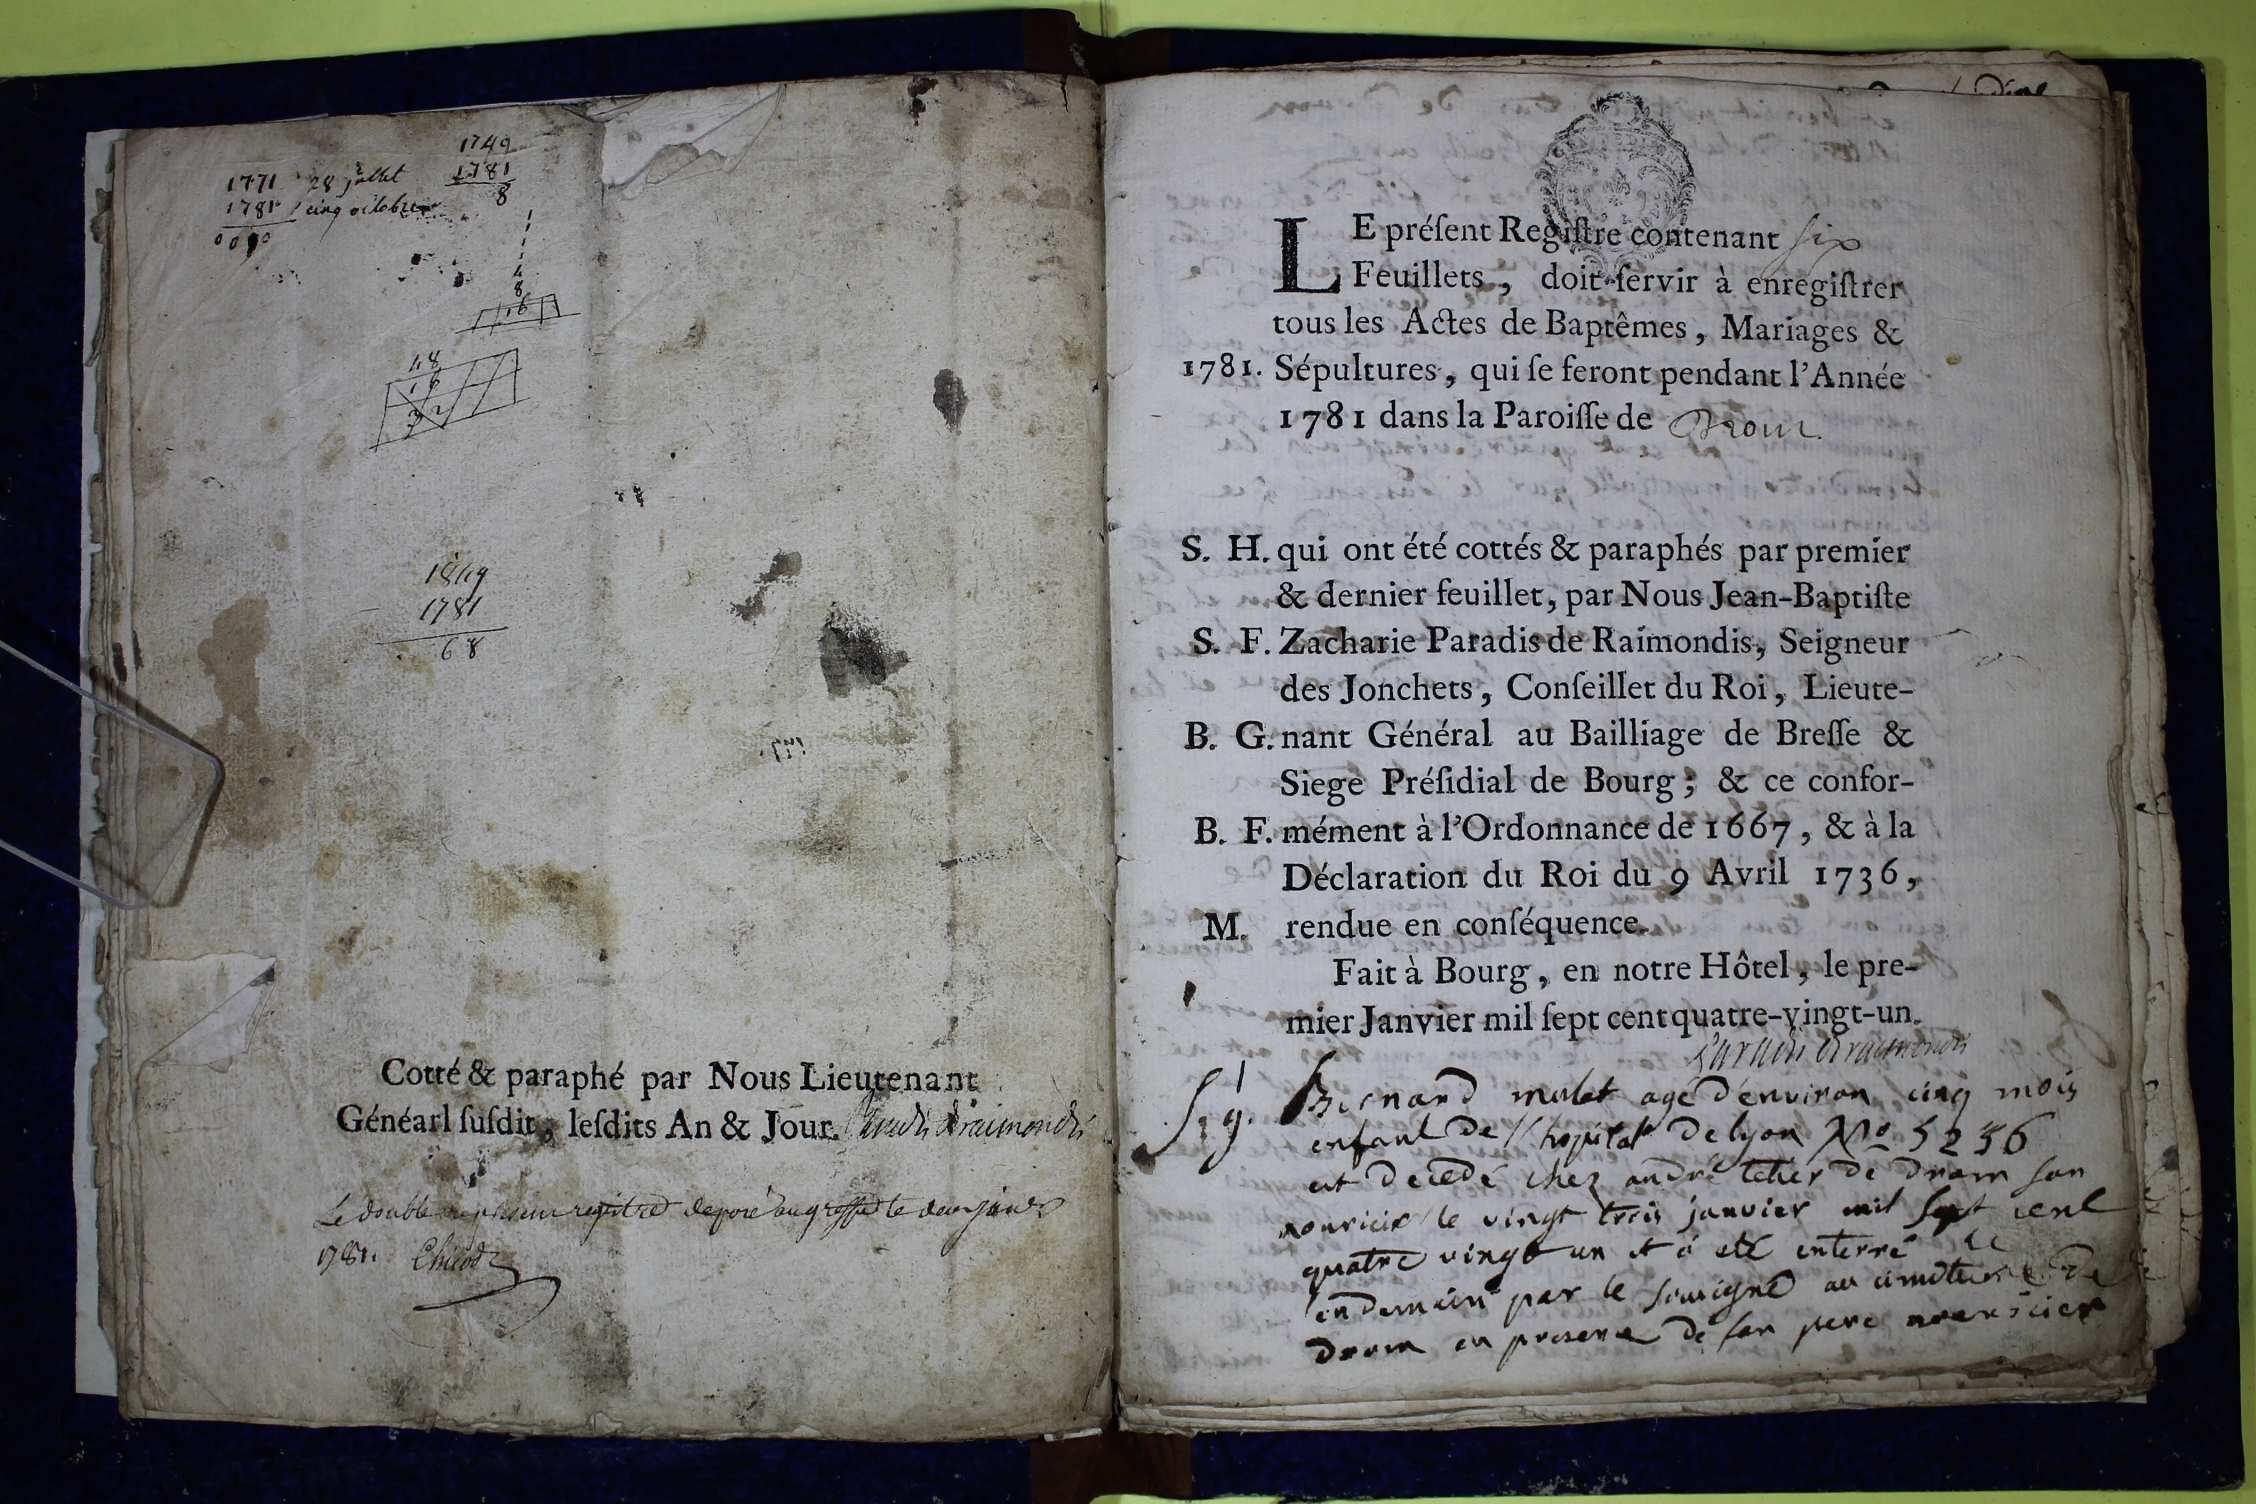 1749
1771 28 jullet 1781
1781 cinq octobre 8
0010
1
1
1
4
8
16
48
16
32
1849
1781
68
Cotté & paraphé par Nous Lieutenant
Généarl ſuſdit, leſdits An & Jour. Paradis deraimondis
Le double du présent registre déposé au greffe le
1781.
LE préſent Regiſtre contenant six
Feuillets, doit ſervir à enregiſtrer
tous les Actes de Baptêmes, Mariages &
1781. Sépultures, qui ſe feront pendant l'Année
1781 dans la Paroiſſe de Drom
S. H. qui ont été cottés & paraphés par premier
& dernier feuillet, par Nous Jean-Baptiſte
S. F. Zacharie Paradis de Raimondis, Seigneur
des Jonchets, Conſeillet du Roi, Lieute-
B. G. nant Général au Bailliage de Breſſe &
Siege Préſidial de Bourg; & ce confor-
B. F. mément à l'Ordonnance de 1667, & à la
Déclaration du Roi du 9 Avril 1736,
M. rendue en conſéquence.
Fait à Bourg, en notre Hôtel, le pre-
mier Janvier mil ſept cent quatre-vingt-un.
Paradis deraimondis
S. g. 1 Bernard mulet agé d'environ cinq mois
enfant de l'hopital de lyon No 5256
est decedé chez andré tetier de drom son
nouricier le vingt trois janvier mil sept cent
quatre vingt un et a eté enterré le
endemain par le sousigné au cimetiere de
drom en presence de son pere nouricier